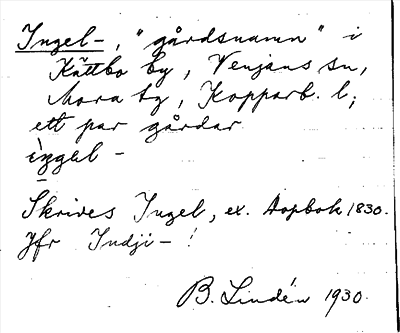 Ingel-, "gårdsnamn" i
Kättbo by, Venjans sn,
Mora tg, Kopparb. l;
ett par gårdar
iŋgəl -
Skrives Ingel, ex. Dopbok 1830.
Jfr Indji- !
B. Lindén 1930.